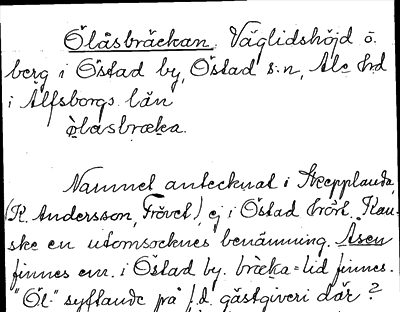 Ölåsbräckan. Väglidshöjd o.
berg i Östad by, Östad s:n, Ale hrd
i Älfsborgs län
ø̀låsbræka.
Namnet antecknat i Skepplanda,
(K. Andersson, Frövet) ej i Östad Kan-
ske en utomsocknes benämning. Åsen
finnes em. i Östad by. brèka = lid finnes.
"Öl-" syftande på f.d. gästgiveri där?